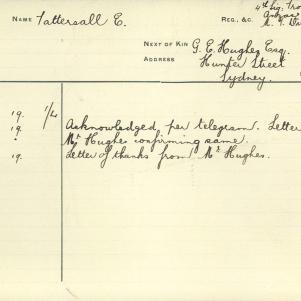 NAME Tattersall E. REG., &C. 4th Sig. Tro
NEXT OF KIN G. E. Hughes Esq.
ADDRESS Hunter Street
Sydney.
19. 1/4 Acknowledged per telegram. Letter
19. Mr Hughes confirming same.
19. Letter of thanks from Mr Hughes.